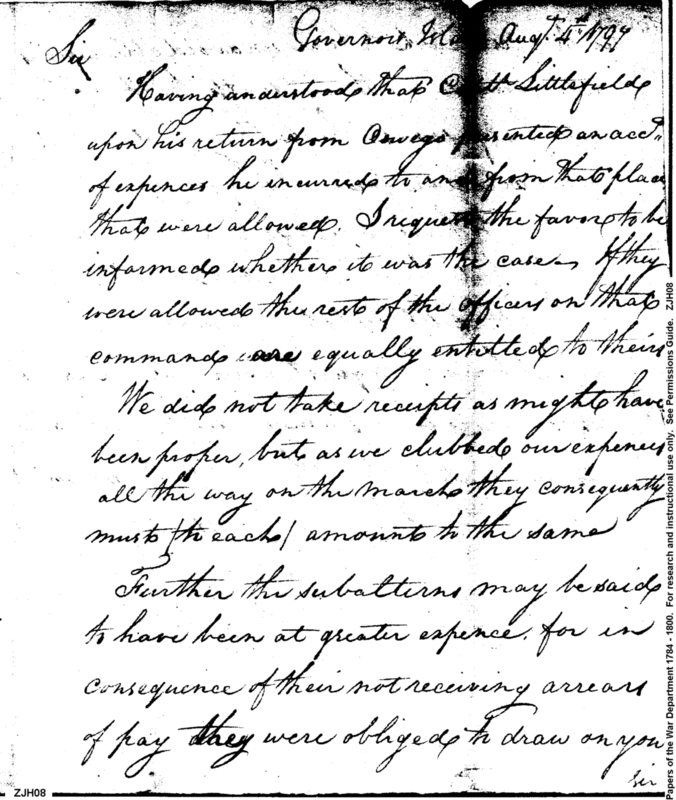 Governors Isla Augt. 4th 1797
Sir
Having understood that Captt Littlefield
upon his return from Oswego presented an acct.
of expences he incurred to and from that place
that were allowed. I request the favor to be
informed whether it was the case. If they
were allowed the rest of the officers on that
command are equally entitled to theirs
We did not take receipts as might have
been proper, but as we clubbed our expences
all the way on the march they consequently
must /to each/ amount to the same
Further the subalterns may be said
to have been at greater expence. for in
consequence of their not receiving arrears
of pay they were obliged to draw on you
sir
ZJH08
Papers of the War Department 1784 - 1800. For research and instructional use only. See Permissions Guide. ZJH08